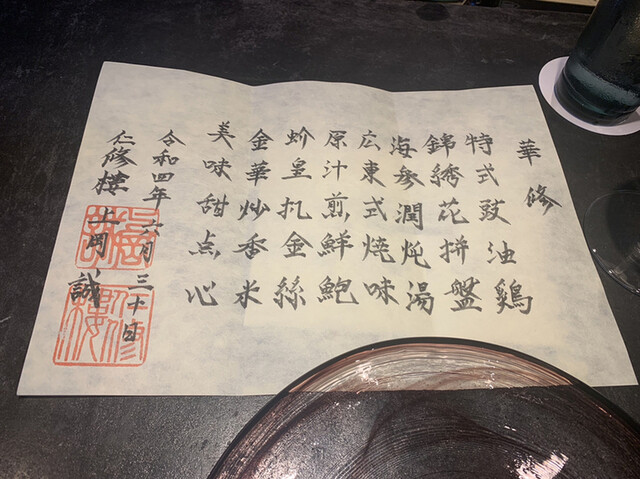 華修
特式豉油鶏
錦綉花拼盤
海参潤炖湯
広東式焼味
原汁煎鮮鮑
蚧皇扎金絲
金華炒香米
美味甜点心
令和四年六月三十日
仁修樓 上岡誠